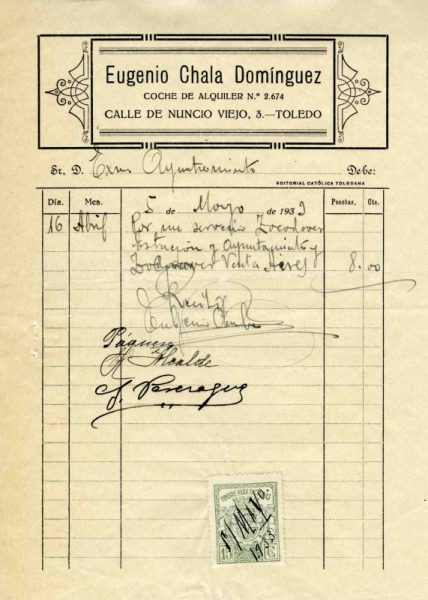 Eugenio Chala Domínguez
COCHE DE ALQUILER N.º 2.674
CALLE DE NUNCIO VIEJO, 3.—TOLEDO
Sr. D. Exmo Ayuntamiento Debe:
EDITORIAL CATÓLICA TOLEDANA
Día. Mes. 5 de Mayo de 1933 Pesetas. Cts.
16 Abril Por un servicio Zocodover
Estación y Ayuntamiento y
Zocodover Venta Aires 8.00
Recibí
Eugenio Chala
Páguese
El Alcalde
TIMBRE PARA
5 MAYO.
1933
15 C